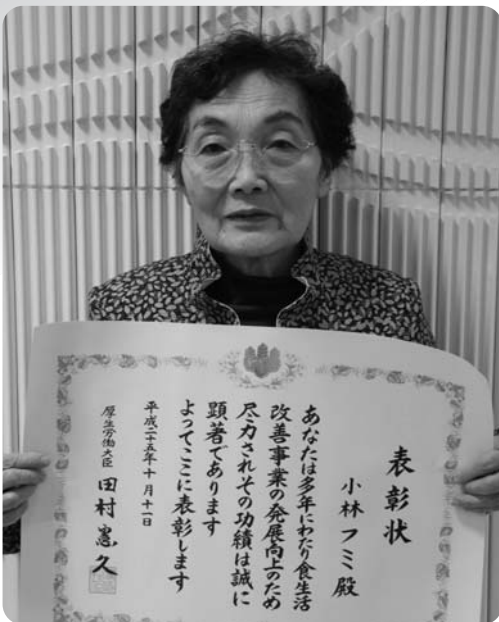 表彰状
小林フミ殿
あなたは多年にわたり食生活
改善事業の発展向上のため
尽力されその功績は誠に
顕著であります
よってここに表彰します
平成二十五年十月十一日
厚生労働大臣 田村憲久